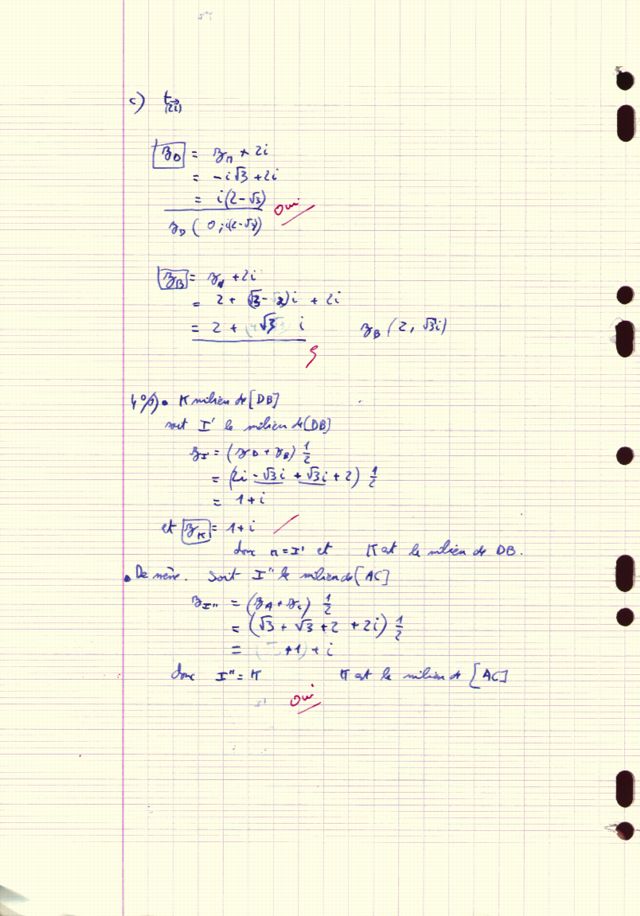 c) t→(2i)
z_D = z_n + 2i
= -i√3 + 2i
= i(2-√3)
oui
z_D (0; i(2-√3))
z_B = z_A + 2i
= 2 + (√3-2)i + 2i
= 2 + √3 i z_B (2, √3i)
4°/a) • K milieu de [DB]
soit I' le milieu de [DB]
z_I' = (z_D + z_B) 1/2
= (2i - √3i + √3i + 2) 1/2
= 1+i
et z_K = 1+i
donc n = I' et K est le milieu de DB.
• De même. Soit I'' le milieu de [AC]
z_I'' = (z_A + z_C) 1/2
= (√3 + √3 + 2 + 2i) 1/2
= ( +1) + i
donc I'' = K K est le milieu de [AC]
oui